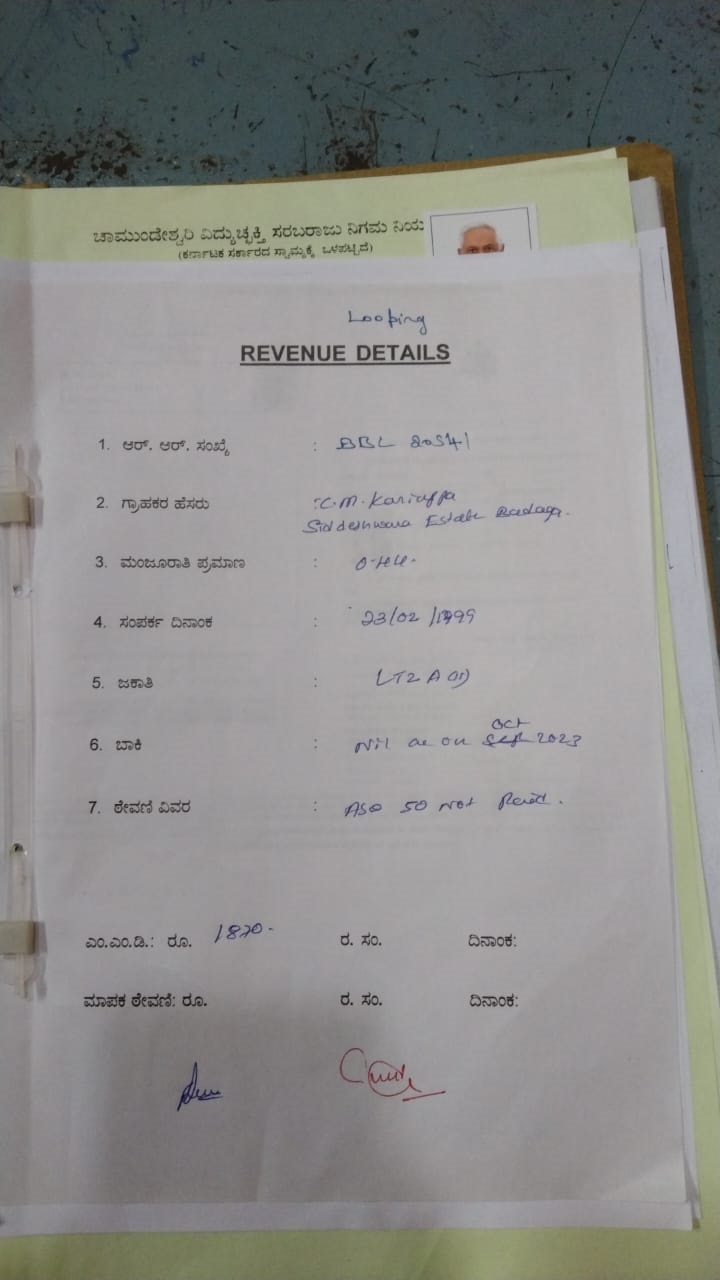 ಚಾಮುಂಡೇಶ್ವರಿ ವಿದ್ಯುಚ್ಛಕ್ತಿ ಸರಬರಾಜು ನಿಗಮ ನಿಯ
(ಕರ್ನಾಟಕ ಸರ್ಕಾರದ ಸ್ವಾಮ್ಯಕ್ಕೆ ಒಳಪಟ್ಟಿದೆ)
Looping
REVENUE DETAILS
1. ಆರ್. ಆರ್. ಸಂಖ್ಯೆ : BBL 20541
2. ಗ್ರಾಹಕರ ಹೆಸರು : C.M. Kariappa
Siddeshwara Estate Badaga.
3. ಮಂಜೂರಾತಿ ಪ್ರಮಾಣ :
4. ಸಂಪರ್ಕ ದಿನಾಂಕ : 23/02/1999
5. ಜಕಾತಿ : LT2 A
Oct
6. ಬಾಕಿ : Nil as on Sept 2023
7. ಠೇವಣಿ ವಿವರ : ASD 50 Not Paid.
ಎಂ.ಎಂ.ಡಿ.: ರೂ. 1870- ರ. ಸಂ. ದಿನಾಂಕ:
ಮಾಪಕ ಠೇವಣಿ: ರೂ. ರ. ಸಂ. ದಿನಾಂಕ: